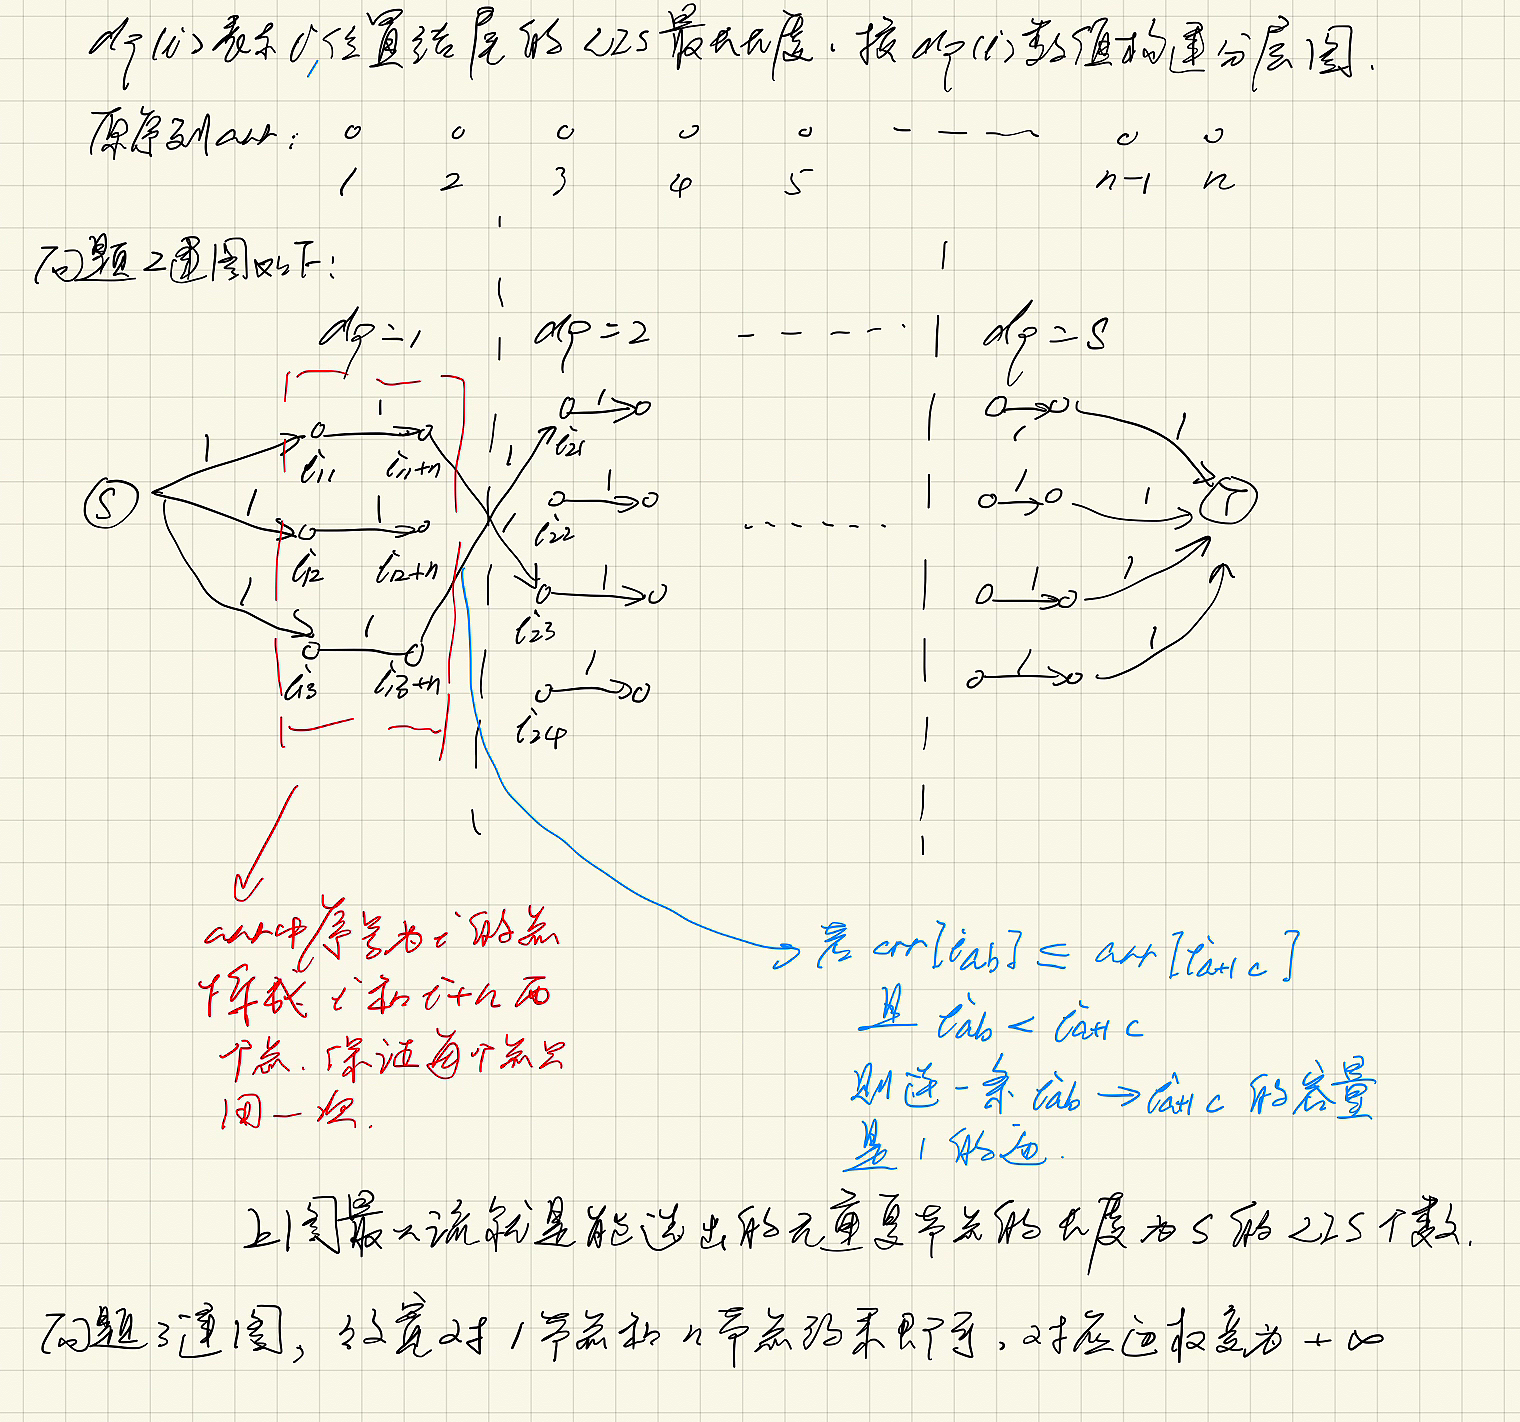 dp(i)表示i位置结尾的LIS最大长度.按dp(i)数值构建分层图.
原序列arr: 0 0 0 0 0 ---- 0 0
1 2 3 4 5 n-1 n
问题2建图如下:
dp=1 dp=2 ----- dp=S
1 1 1 1
i11 i11+n i21
S 1 1 1 1 1 1 T
i12 i12+n i22
1 1 1 1 1
i13 i13+n i23
1 1 1
i24
arr中序号为i的点
拆成i和i+n两
个点.保证每个点只
用一次.
若arr[iab]≤arr[ia+1c]
且iab<ia+1c
则连一条iab→ia+1c的容量
是1的边.
上图最大流就是能选出的无重复节点的长度为S的LIS个数.
问题3建图,放宽对1节点和n节点约束即可,对应边权变为+∞